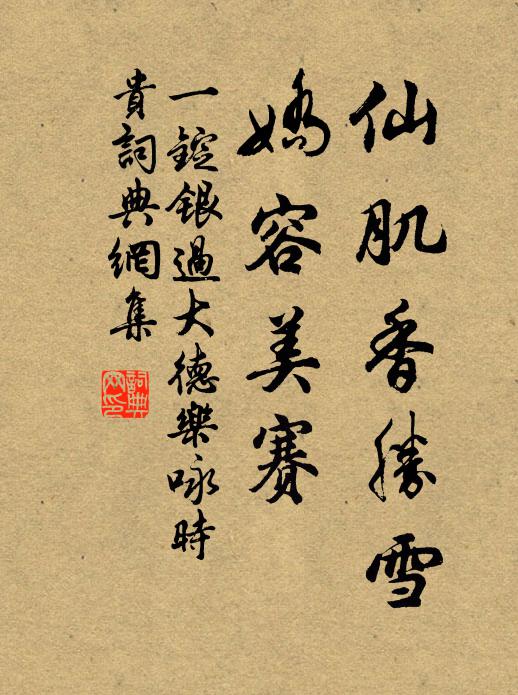 仙肌香勝雪
嬌容美賽
一錠銀過大德樂咏時
貴詞典網集
詞典